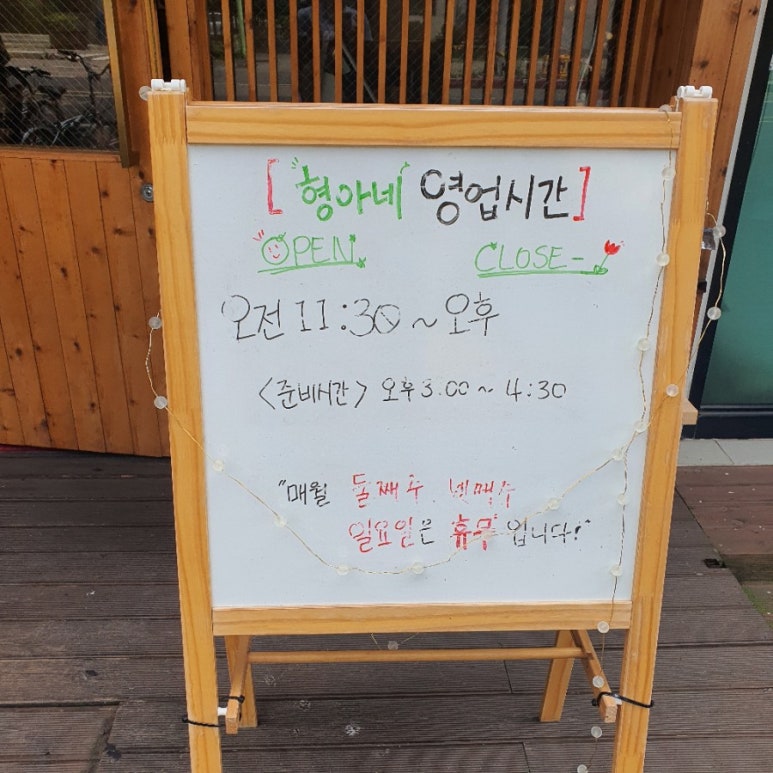 [형아네 영업시간]
OPEN CLOSE-
오전 11:30 ~ 오후
<준비시간> 오후 3.00 ~ 4:30
"매월 둘째주, 넷째주
일요일은 휴무입니다!"